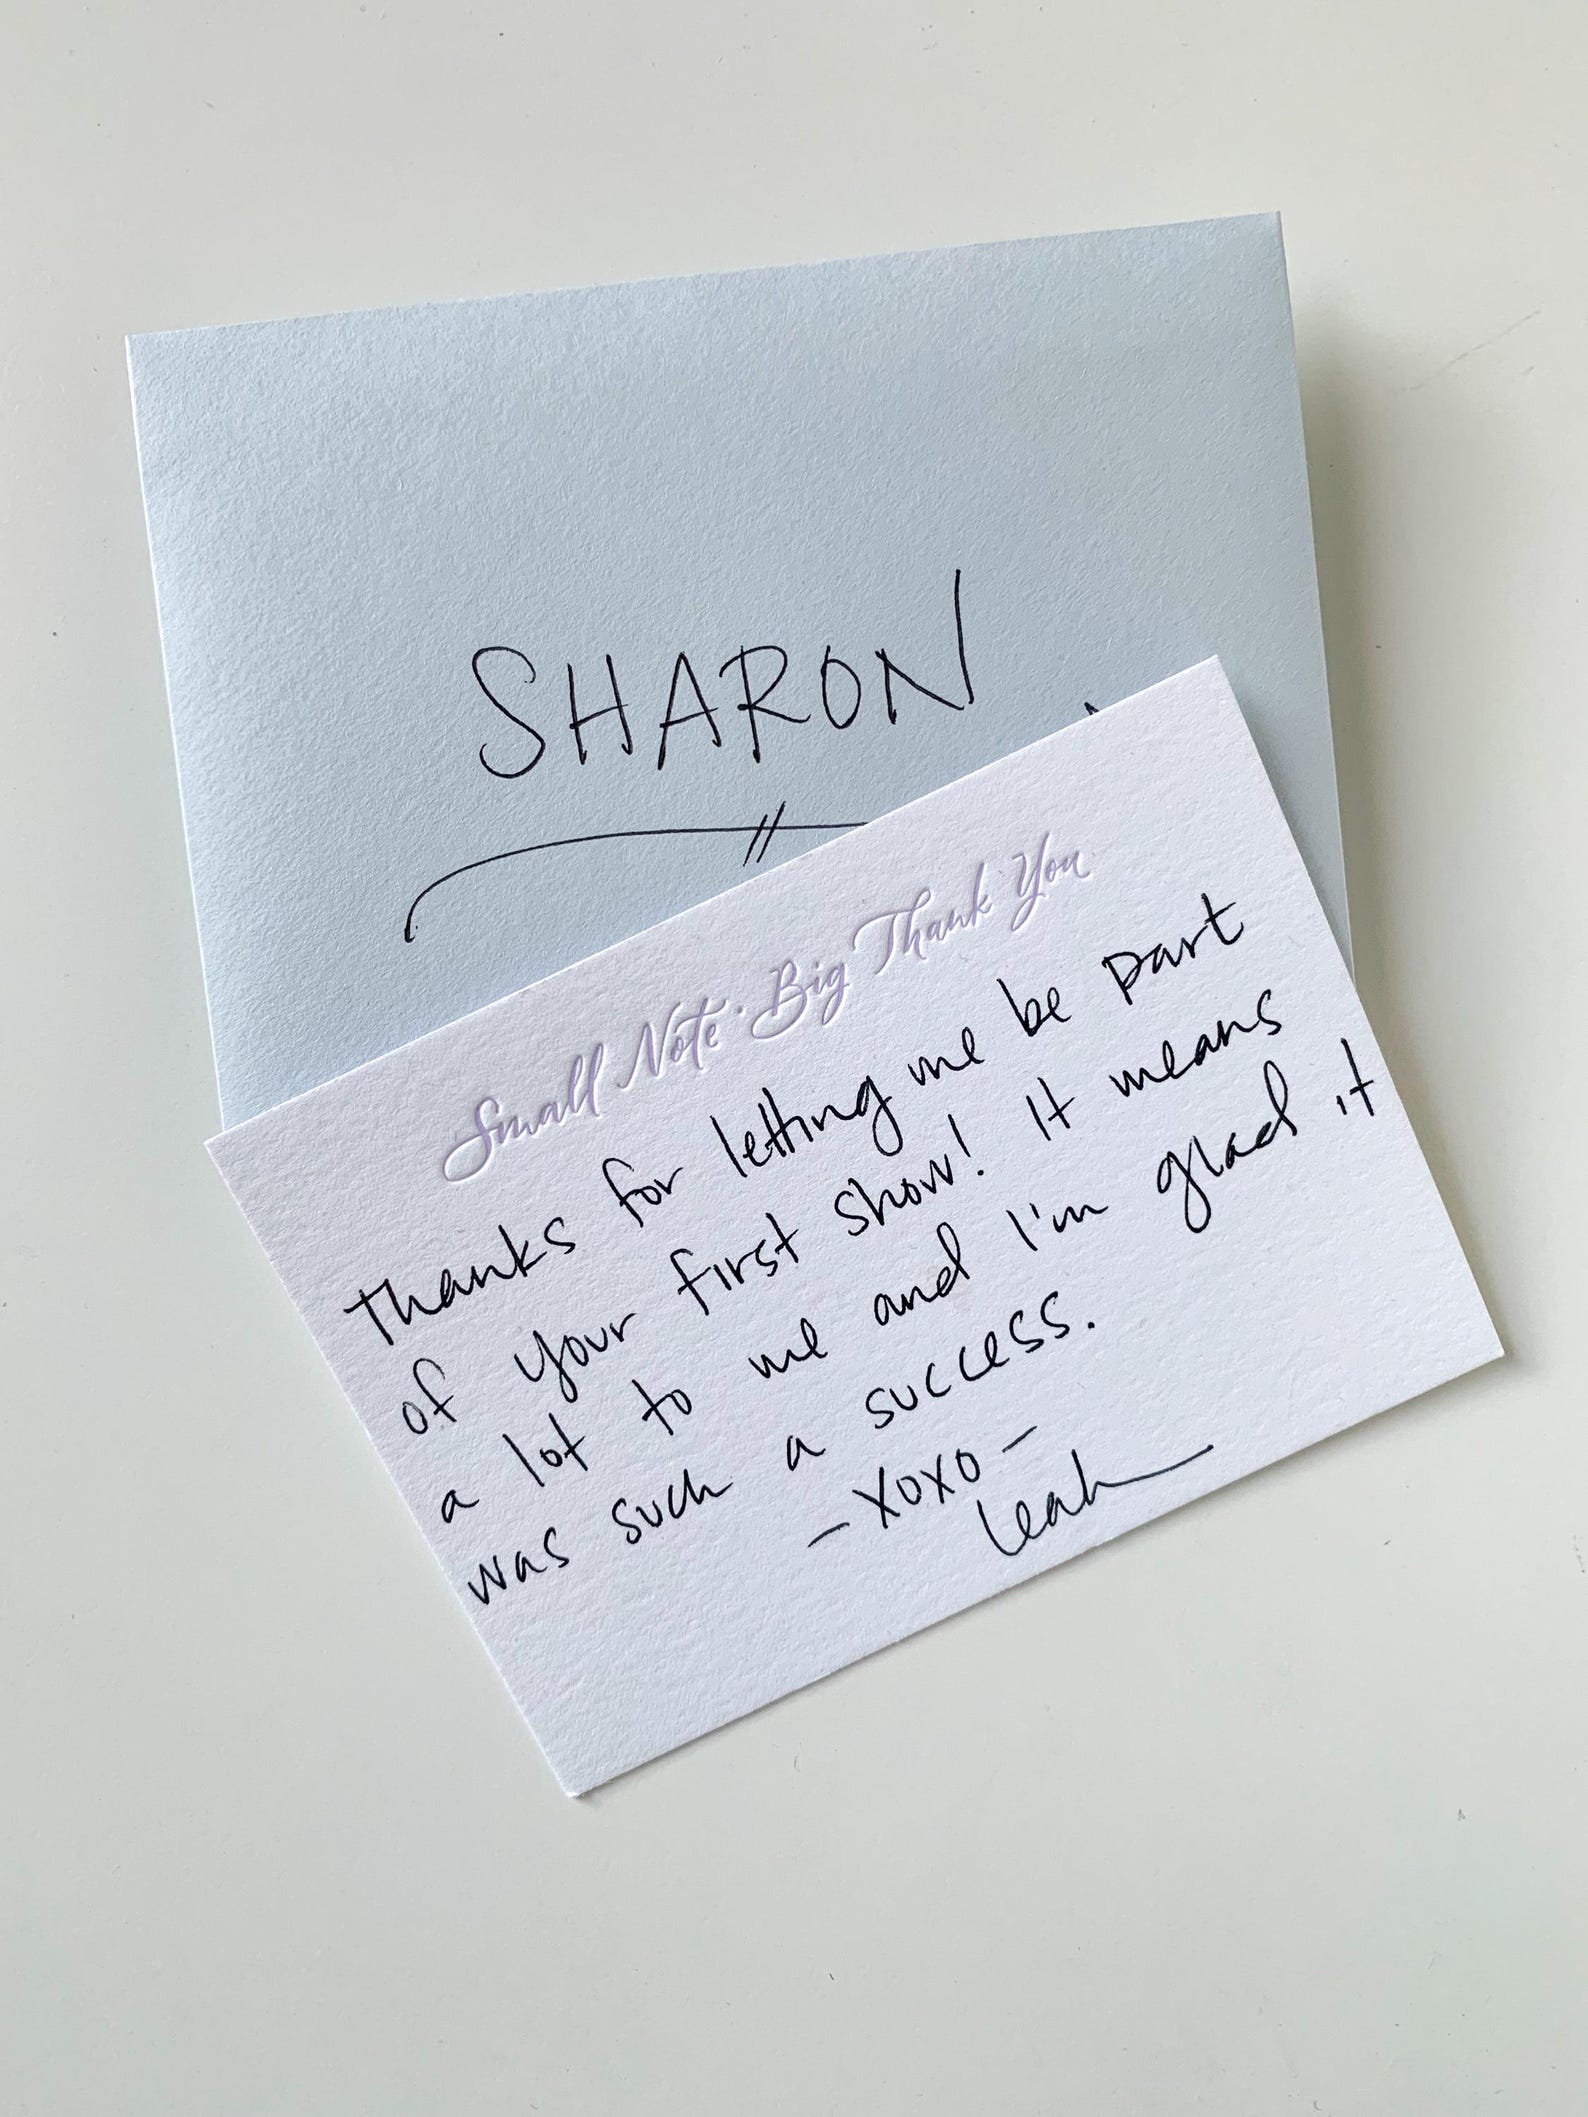 SHARON
Small Note · Big Thank You
Thanks for letting me be part
of your first show! It means
a lot to me and I'm glad it
was such a success.
- XOXO -
Leah